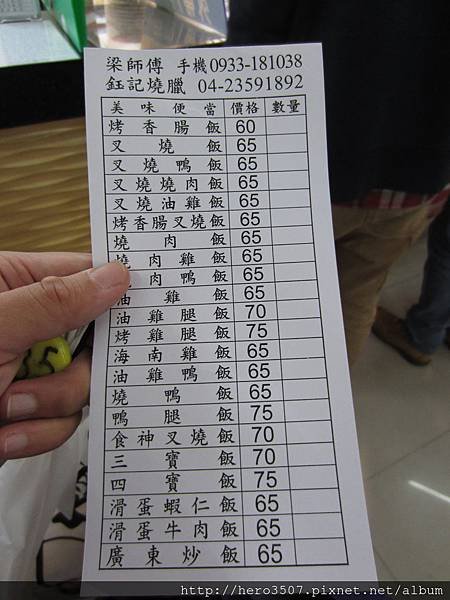 梁師傅 手機0933-181038
鈺記燒臘 04-23591892
美味便當 價格 數量
烤香腸飯 60
叉燒飯 65
叉燒鴨飯 65
叉燒燒肉飯 65
叉燒油雞飯 65
烤香腸叉燒飯 65
燒肉飯 65
燒肉雞飯 65
肉鴨飯 65
油雞飯 65
油雞腿飯 70
烤雞腿飯 75
海南雞飯 65
油雞鴨飯 65
燒鴨飯 65
鴨腿飯 75
食神叉燒飯 70
三寶飯 70
四寶飯 75
滑蛋蝦仁飯 65
滑蛋牛肉飯 65
廣東炒飯 65
http://hero3507.pixnet.net/album